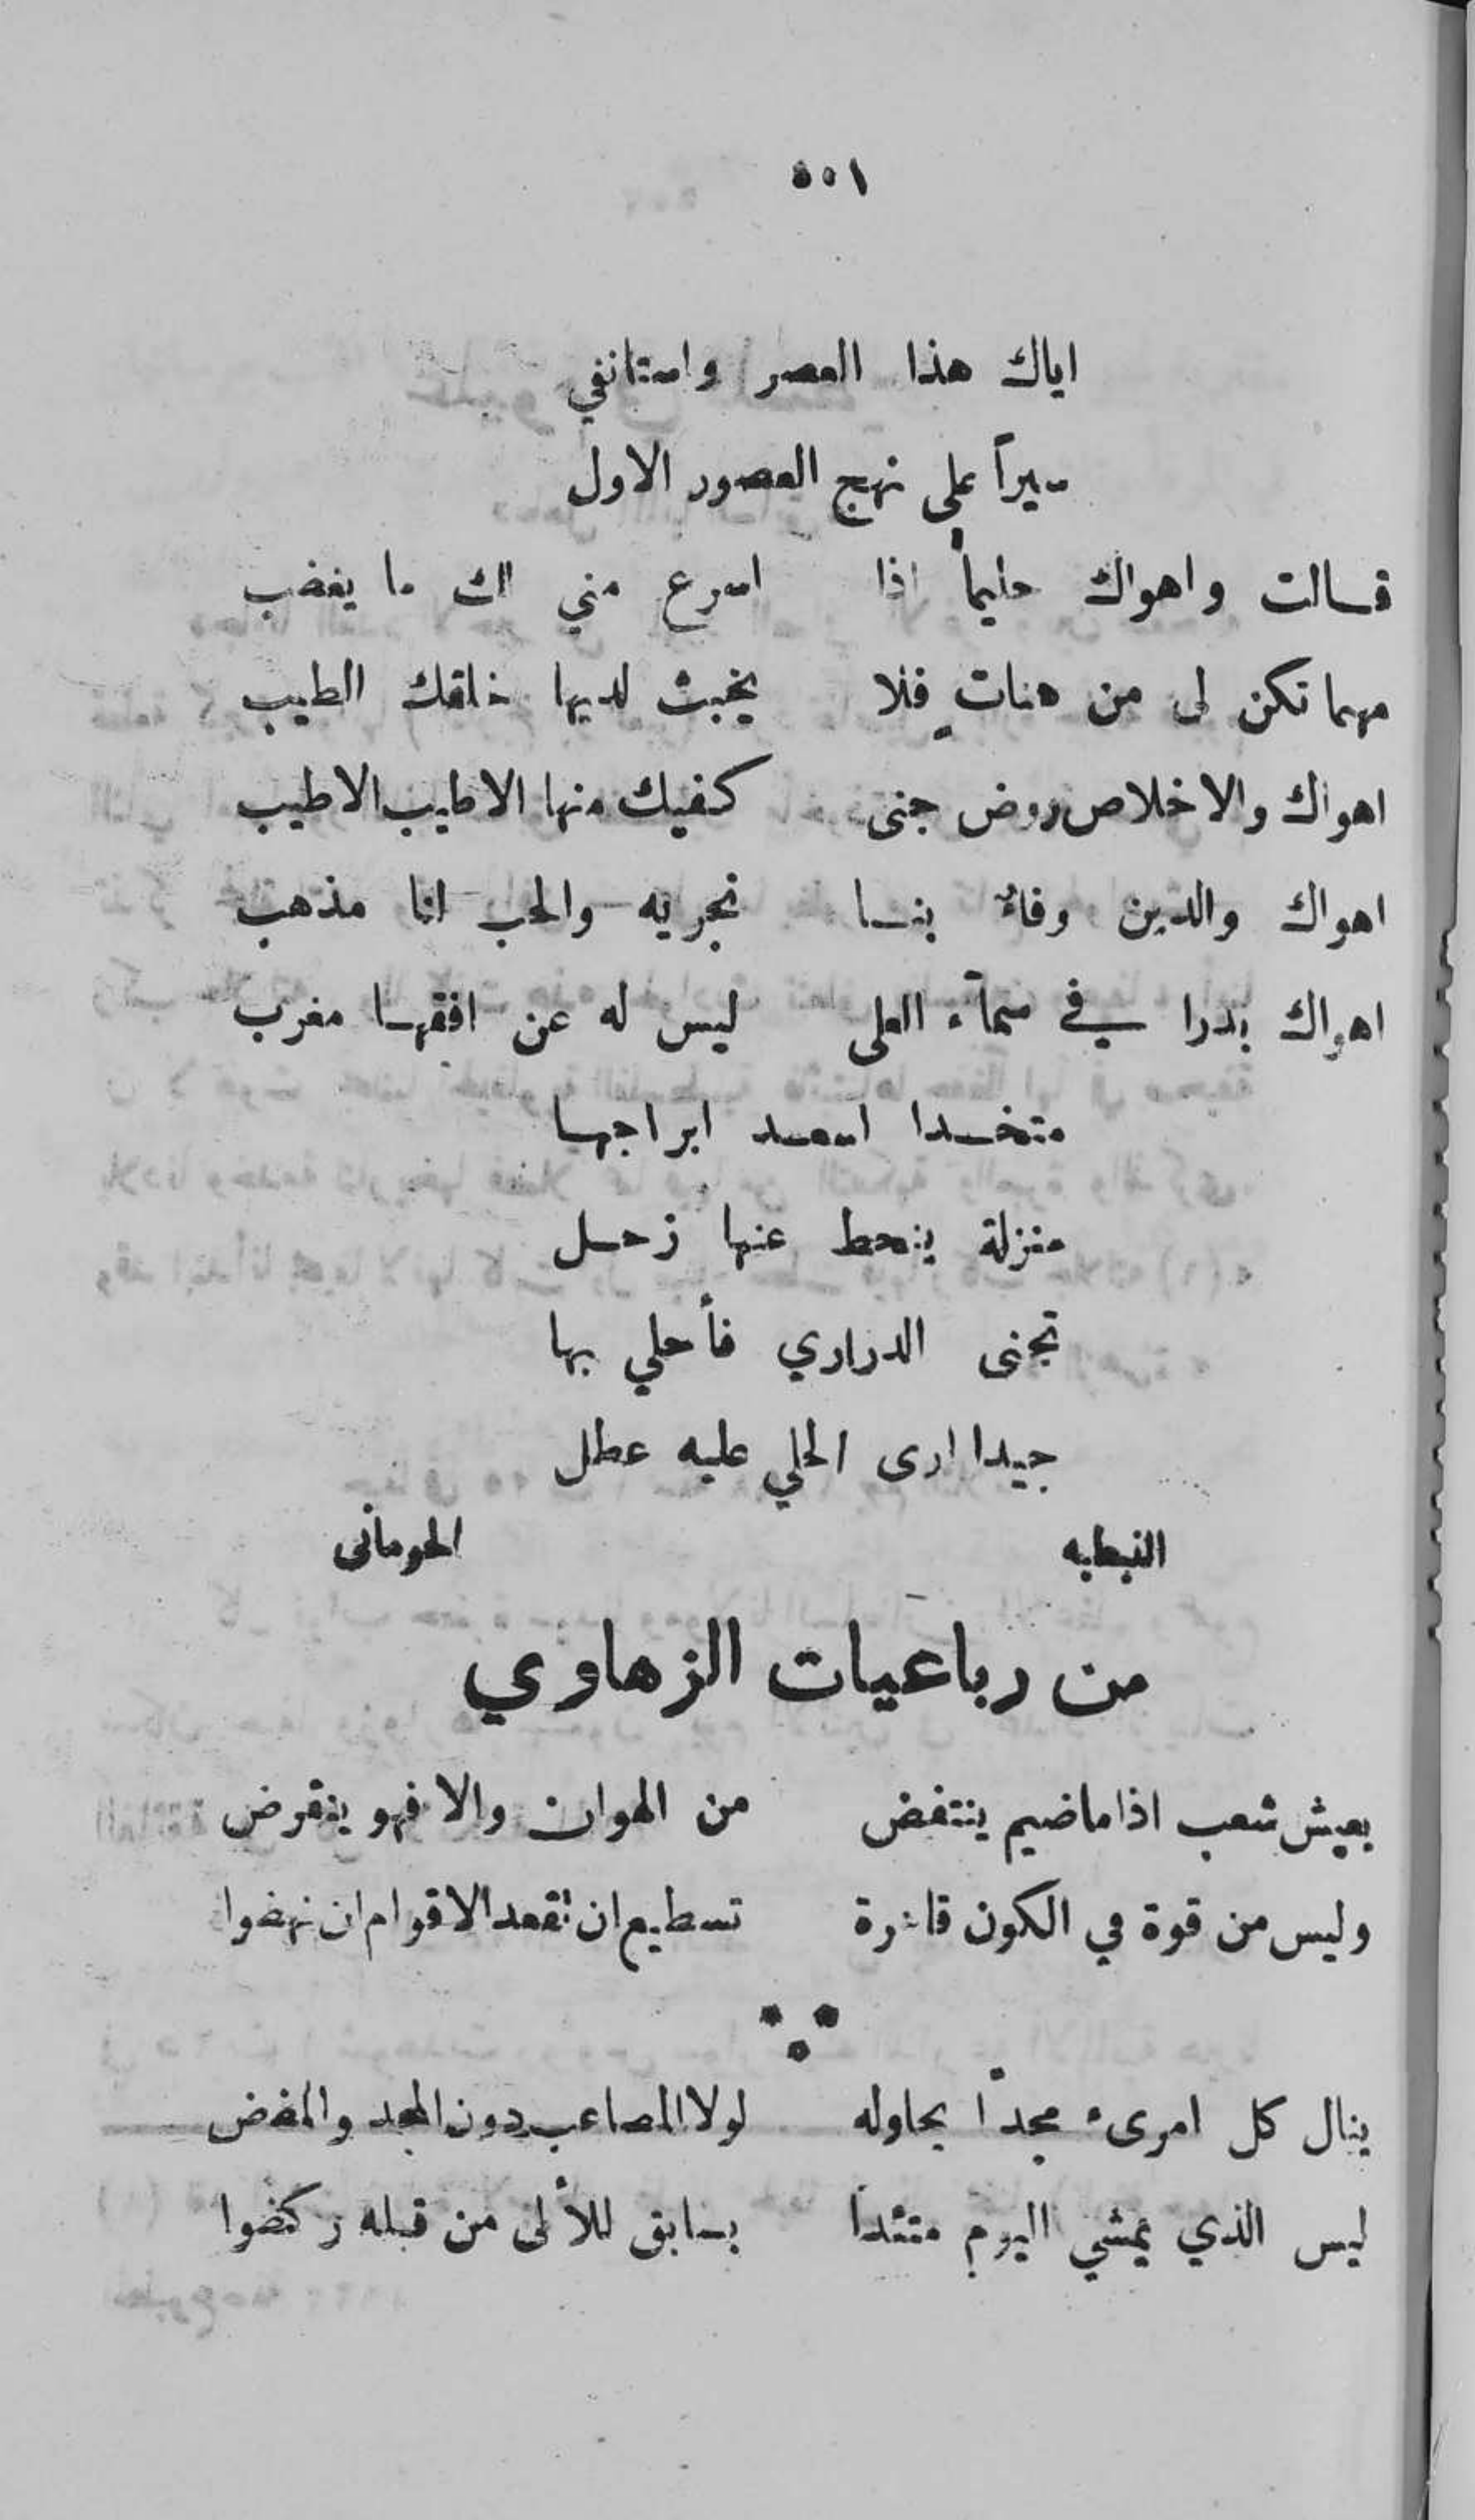 ٥٠١
اياك هذا العصر واستانفي
سيراً على نهج العصور الاول
قالت واهواك حليماً اذا اسرع مني لك ما يغضب
مهما تكن لى من هنات فلا يخبث لديها خلقك الطيب
اهواك والاخلاص روض جنى كفيك منها الاطيب الاطيب
اهواك والدين وفاءٌ بنا نجريه والحب لنا مذهب
اهواك بدرا في سمآء العلى ليس له عن افقها مغرب
متخدا اسعد ابراجها
منزلة ينحط عنها زحل
تجنى الدراري فأحلي بها
جيدا ارى الحلي عليه عطل
النبطيه الحومانى
من رباعيات الزهاوي
يعيش شعب اذا ماضيم ينتفض من الهوان والا فهو ينقرض
وليس من قوة في الكون قادرة تسطيع ان تقعد الاقوام ان نهضوا
ينال كل امرىء مجداً يحاوله لولا المصاعب دون المجد والمضض
ليس الذي يمشي اليوم متئداً بسابق للألى من قبله ركضوا